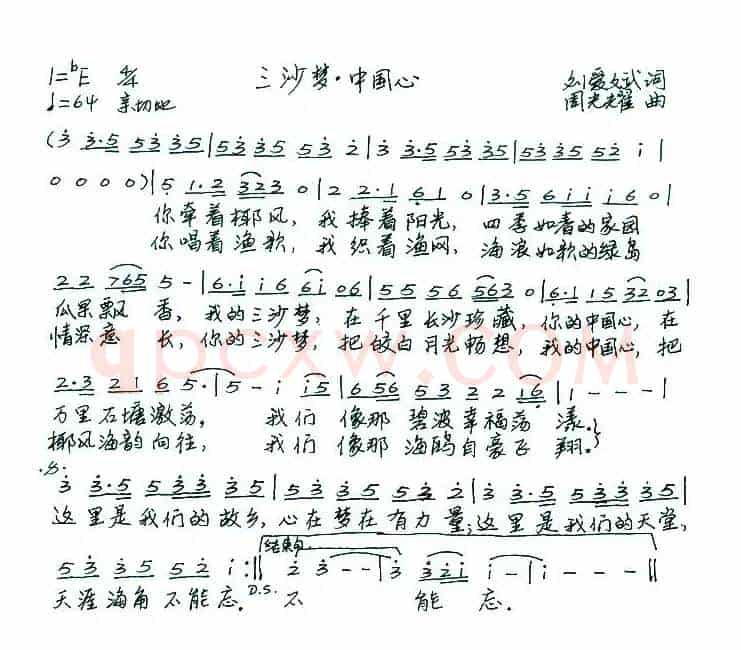 1=ᵇE 4/4 三沙梦·中国心 刘爱斌词
♩=64 亲切地 周光耀 曲
(3 3·5 53 35|5335 53 2|3 3·5 5335|5335 52 i|
0 0 0 0)|5 1·2 323 0|2 2·1 61 0|3·5 6i i i6 0|
你牵着椰风,我捧着阳光,四季如春的家园
你唱着渔歌,我织着渔网,海浪如歌的绿岛
22 765 5 -|6·i i6 6i 06|55 56 563 0|6·1 15 32 03|
瓜果飘香,我的三沙梦,在千里长沙珍藏,你的中国心,在
情深意长,你的三沙梦,把皎白月光畅想,我的中国心,把
2·3 21 6 5·|5 - i i5|6 56 53 22 16|1 - - -|
万里石塘激荡,我们像那碧波幸福荡漾.
椰风海韵向往,我们像那海鸥自豪飞翔.
.S.
3 3·5 533 35|53 35 52 2|3 3·5 5335|
这里是我们的故乡,心在梦在有力量;这里是我们的天堂,
结束句
53 35 52 i :|| 2 3 - -|3 321 i -|i - - -||
天涯海角不能忘. D.S. 不能忘.
qpcxw.com